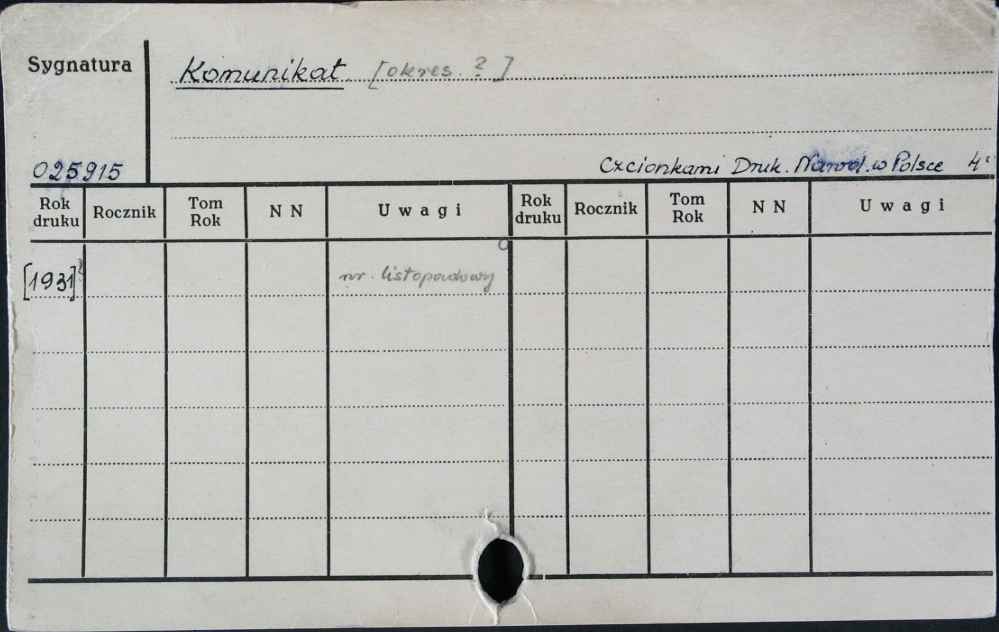 Sygnatura
Komunikat [okres. ?]
025915
Czcionkami Druk. Narod. w Polsce 4°
Rok druku Rocznik Tom Rok N N Uwagi Rok druku Rocznik Tom Rok N N Uwagi
[1931] nr. listopadowy